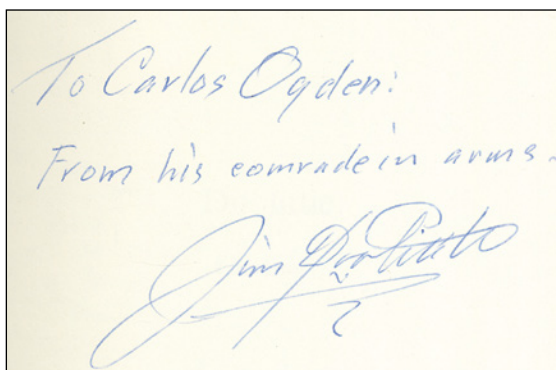 To Carlos Ogden:
From his comrade in arms.
Jim